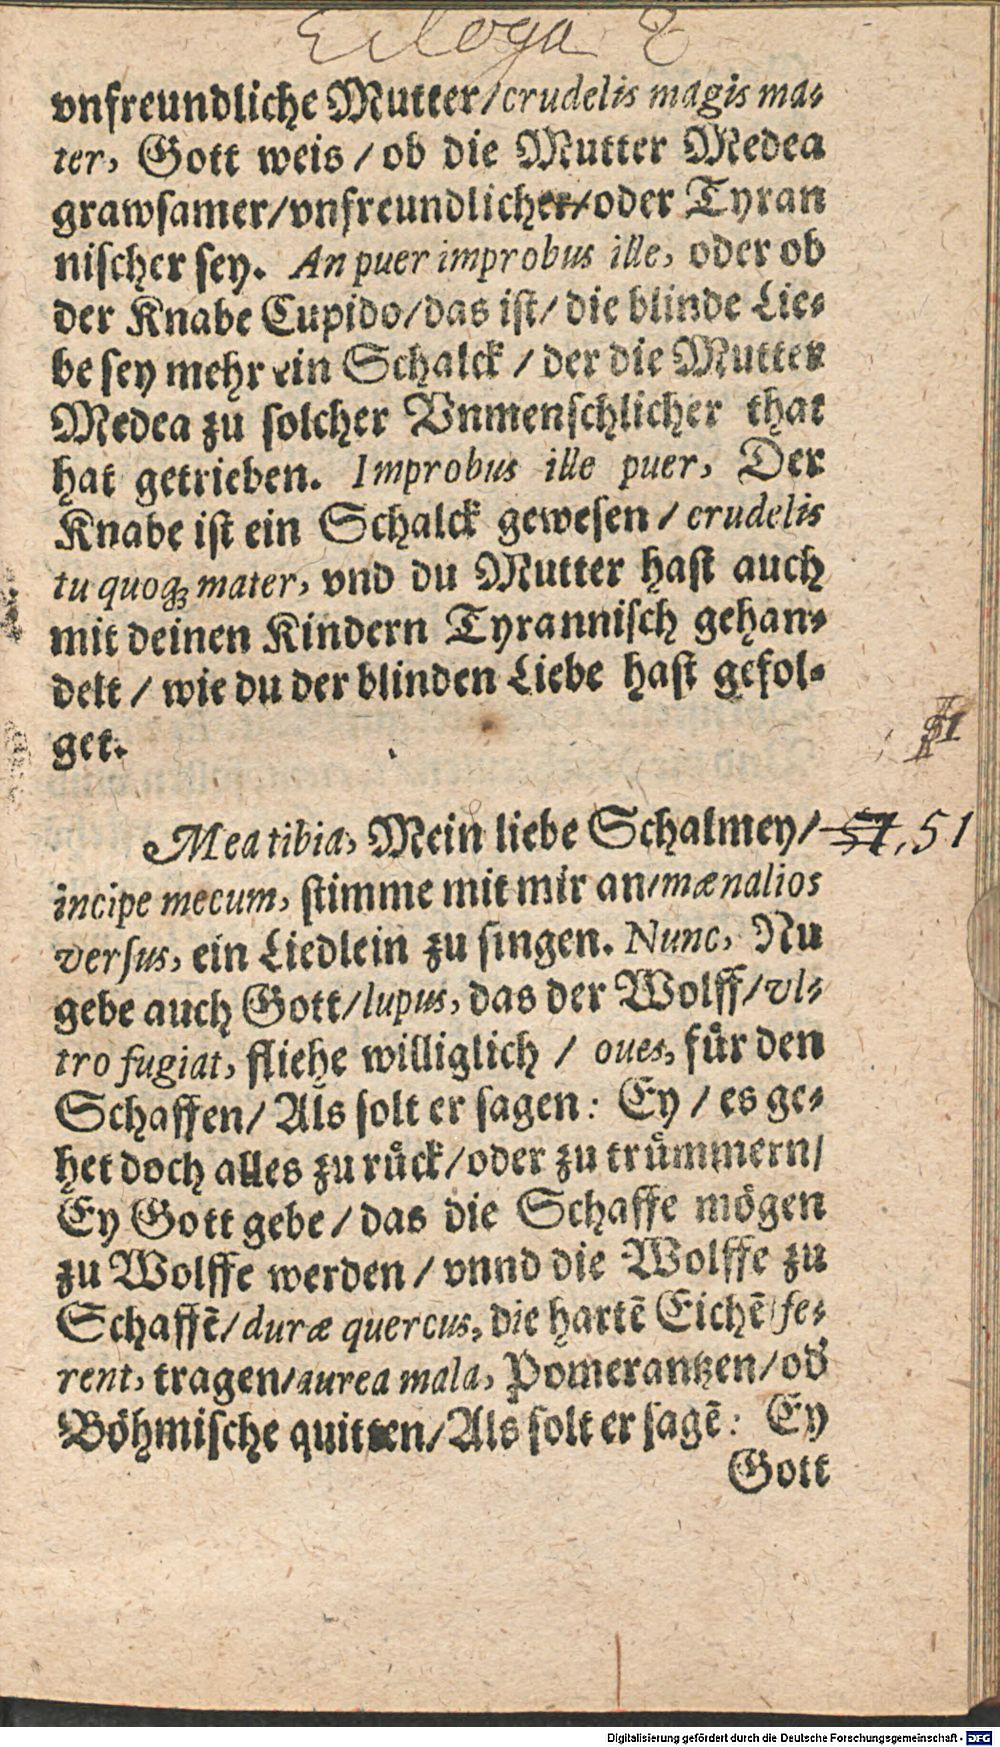 Ecloga 8
vnfreundliche Mutter/crudelis magis ma-
ter, Gott weis / ob die Mutter Medea
grawsamer/vnfreundlicher/oder Tyran
nischer sey. An puer improbus ille, oder ob
der Knabe Cupido/das ist/ die blinde Lie-
be sey mehr ein Schalck / der die Mutter
Medea zu solcher Vnmenschlicher that
hat getrieben. Improbus ille puer, Der
Knabe ist ein Schalck gewesen / crudelis
tu quoq; mater, vnd du Mutter hast auch
mit deinen Kindern Tyrannisch gehan-
delt / wie du der blinden Liebe hast gefol-
get.
Mea tibia, Mein liebe Schalmey/ 51
incipe mecum, stimme mit mir an/mænalios
versus, ein Liedlein zu singen. Nunc, Nu
gebe auch Gott/lupus, das der Wolff/vl-
tro fugiat, fliehe williglich / oues, fuͤr den
Schaffen/ Als solt er sagen: Ey / es ge-
het doch alles zu ruͤck/oder zu truͤmmern/
Ey Gott gebe / das die Schaffe moͤgen
zu Wolffe werden / vnnd die Wolffe zu
Schaffē/duræ quercus, die hartē Eichē/fe-
rent, tragen/aurea mala, Pomerantzen/od'
Boͤhmische quitten/Als solt er sagē: Ey
Gott
Digitalisierung gefördert durch die Deutsche Forschungsgemeinschaft - DFG